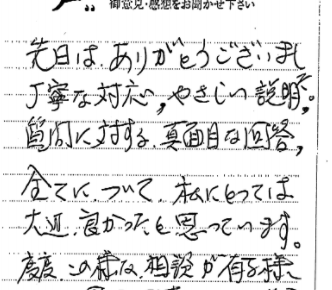 御意見・感想をお聞かせ下さい
先日は、ありがとうございまし
丁寧な対応、やさしい説明で。
質問に対する、真面目な回答、
全てに、ついて、私にとっては
大辺、良かったと思っています。
度度、この様な、相談が有る様に